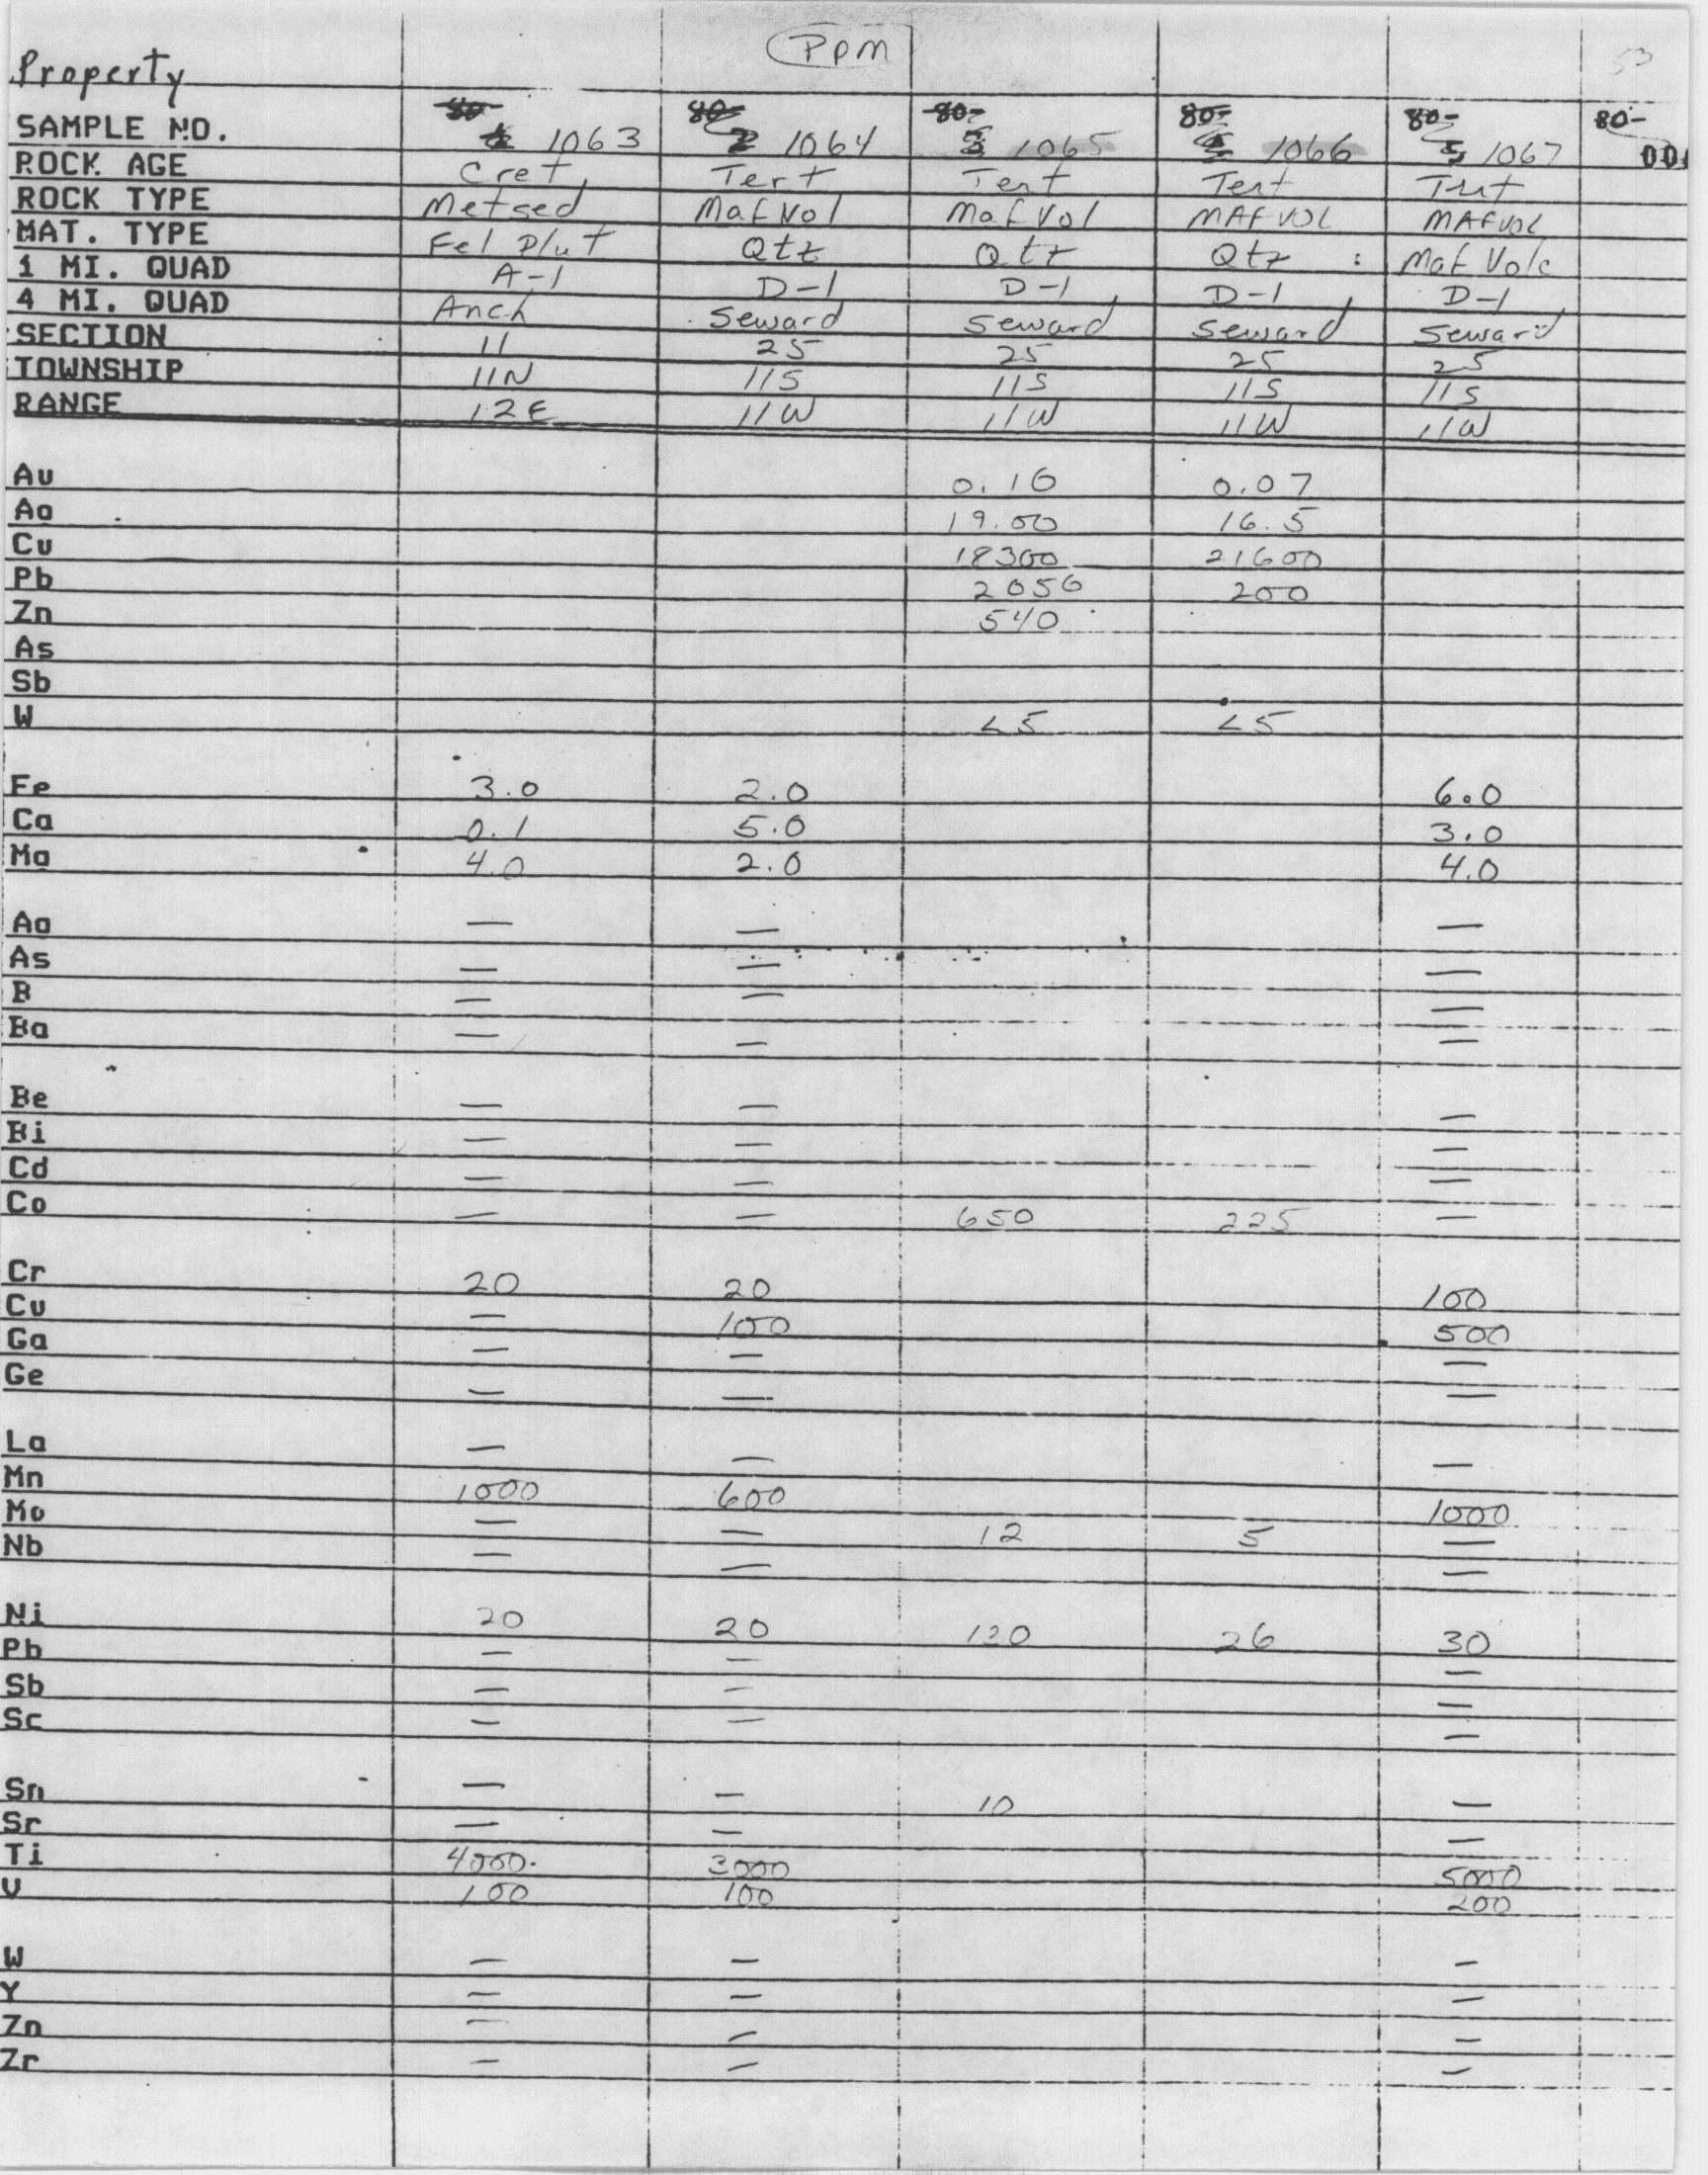 Ppm
Property
SAMPLE NO. 80- 1063 80- 2 1064 80- 3 1065 80- 1066 80- 5 1067 80- 00
ROCK AGE Cret Tert Tert Tert Tert
ROCK TYPE Metsed Maf Vol Maf Vol MAF VOL MAFVOL
MAT. TYPE Fel Plut Qtz Qtz Qtz : Maf Volc
1 MI. QUAD A-1 D-1 D-1 D-1 D-1
4 MI. QUAD Anch Seward Seward Seward Seward
SECTION 11 25 25 25 25
TOWNSHIP 11N 11S 11S 11S 11S
RANGE 12E 11W 11W 11W 11W
Au 0.16 0.07
Ag 19.00 16.5
Cu 18300 21600
Pb 2050 200
Zn 540
As
Sb
W <5 <5
Fe 3.0 2.0 6.0
Ca 0.1 5.0 3.0
Mg 4.0 2.0 4.0
Ag — — —
As — — —
B — — —
Ba — — —
Be — — —
Bi — — —
Cd — — —
Co — — 650 225 —
Cr 20 20 100
Cu — 100 500
Ga — — —
Ge — — —
La — — —
Mn 1000 600 1000
Mo — — 12 5 —
Nb — — —
Ni 20 20 120 26 30
Pb — — —
Sb — — —
Sc — — —
Sn — — 10 —
Sr — — —
Ti 4000. 3000 5000
V 100 100 200
W — — —
Y — — —
Zn — — —
Zr — — —